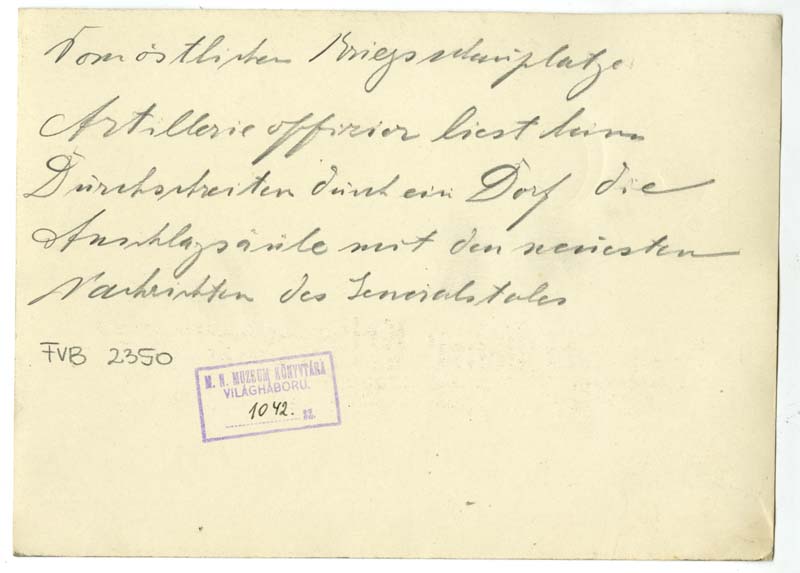 Vom östlichen Kriegsschauplatze
Artillerieoffizier liest beim
Durchschreiten durch ein Dorf die
Anschlagsäule mit den neuesten
Nachrichten des Generalstabes
FVB 2350
M. N. MUZEUM KÖNYVTÁRA
VILÁGHÁBORU.
1042. sz.